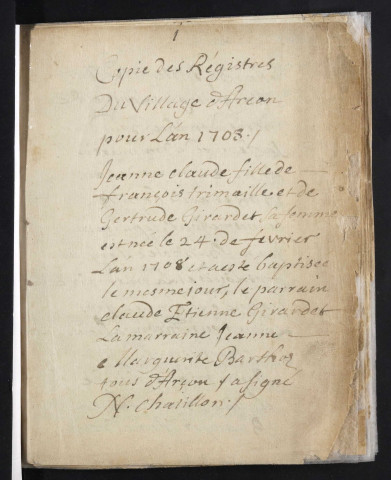 1
Copie des Régistres
Du Village d'Arcon
pour L'án 1708 /
Jeanne claude fille de
françois trimaille et de
Gertrude Girardet, sa femme
est née le 24. de février
Lán 1708 et a esté baptisée
le mesme jour, le parrain
claude Etienne Girardet
La marraine Jeanne
Marguerite
tous d'Arçon / a signé
N. Chatillon. /